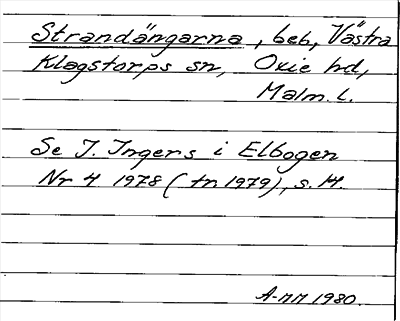 Strandängarna, beb, Västra
Klagstorps sn, Oxie hd,
Malm. l.
Se I. Ingers i Elbogen
Nr 4 1978 (tr 1979), s. 14.
A-MM 1980.